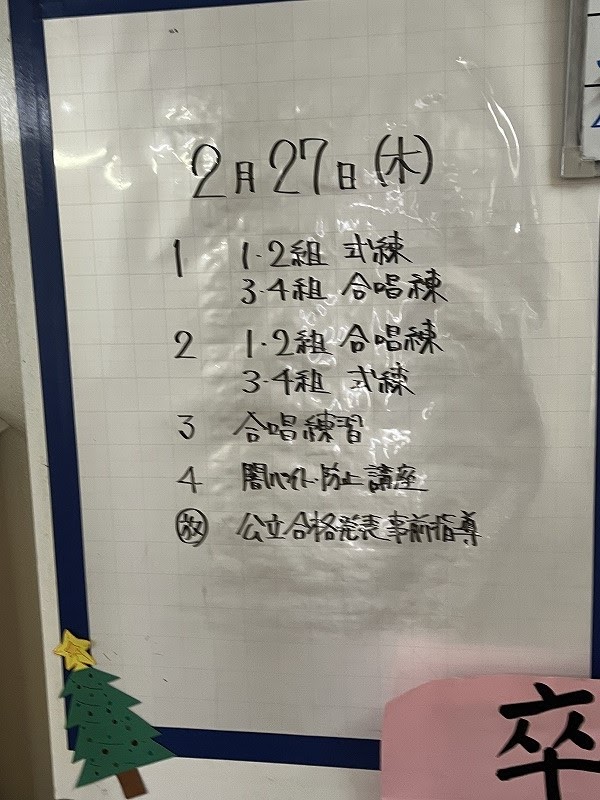 2月27日(木)
1 1・2組 式練
3・4組 合唱練
2 1・2組 合唱練
3・4組 式練
3 合唱練習
4 闇バイト防止講座
放 公立合格発表事前指導
卒